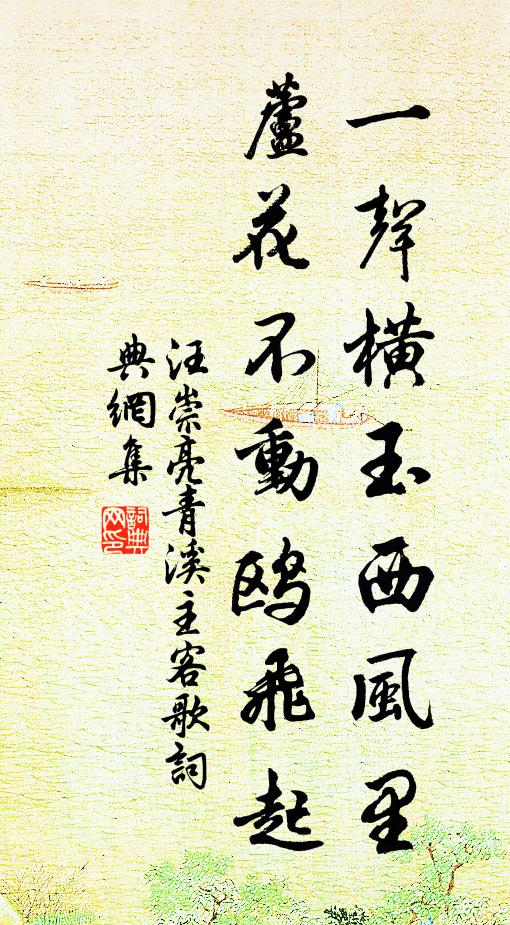 一聲橫玉西風里
蘆花不動鷗飛起
汪崇亮青溪主客歌詞
典網集
詞典
网印